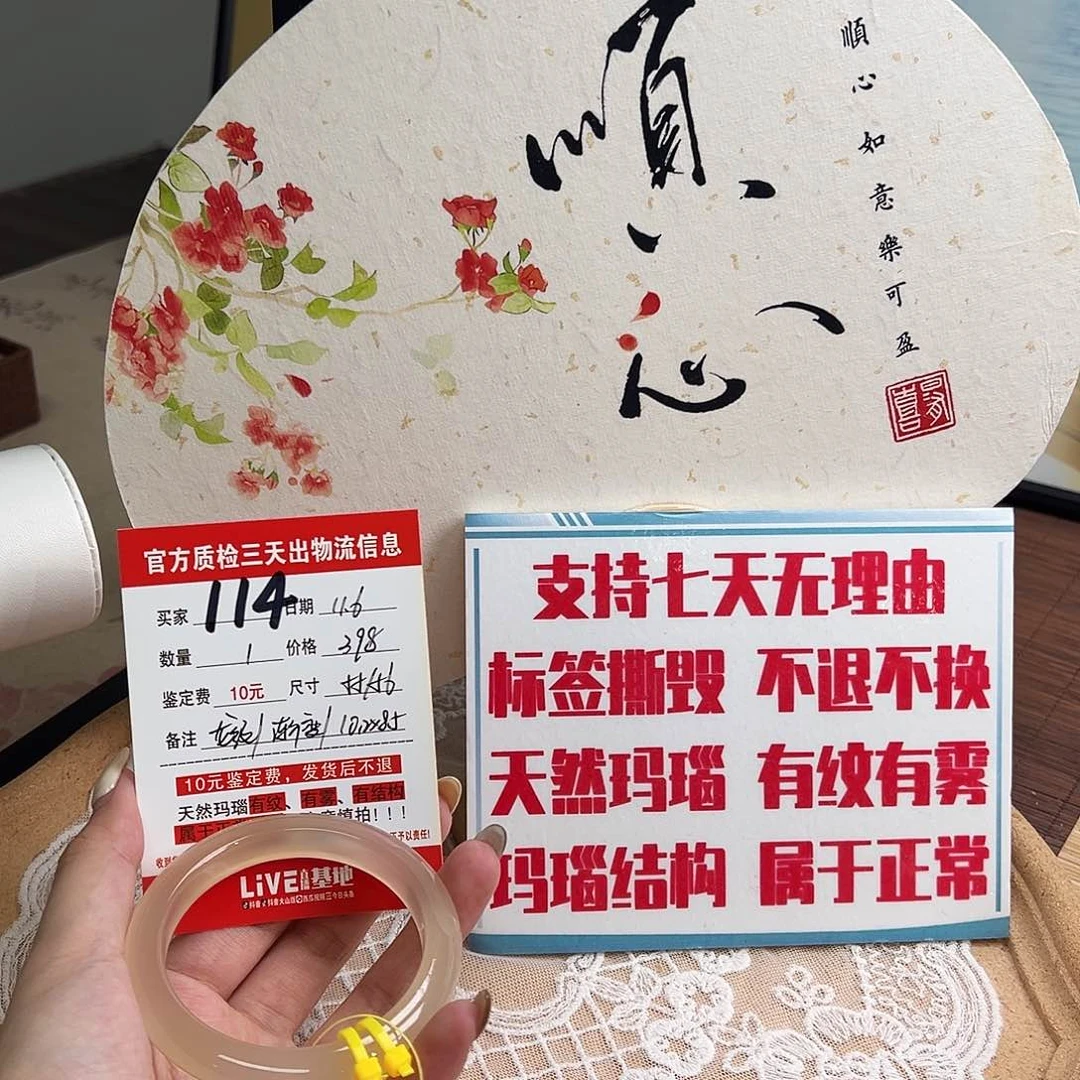 順心
順心如意樂可盈
官方质检三天出物流信息
买家 114 日期 11.6
数量 1 价格 398
鉴定费 10元 尺寸
备注
10元鉴定费，发货后不退
天然玛瑙有纹、有雾、有结构
属于正 慎拍！！！
收到 不予以责任！
LiVE 直播基地
支持七天无理由
标签撕毁 不退不换
天然玛瑙 有纹有雾
玛瑙结构 属于正常